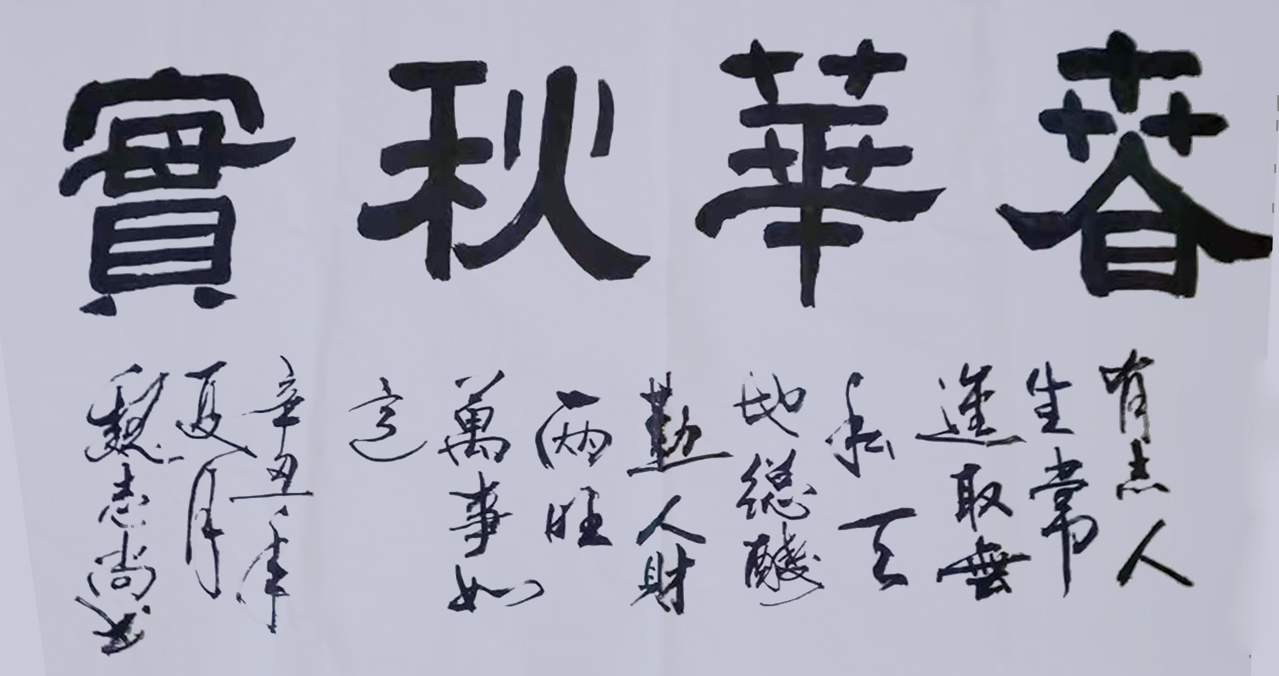 春華秋實
有志人
生常
進取無
私天
地總酬
勤人財
兩旺
萬事如
意
辛丑年
夏月
魏志尚书